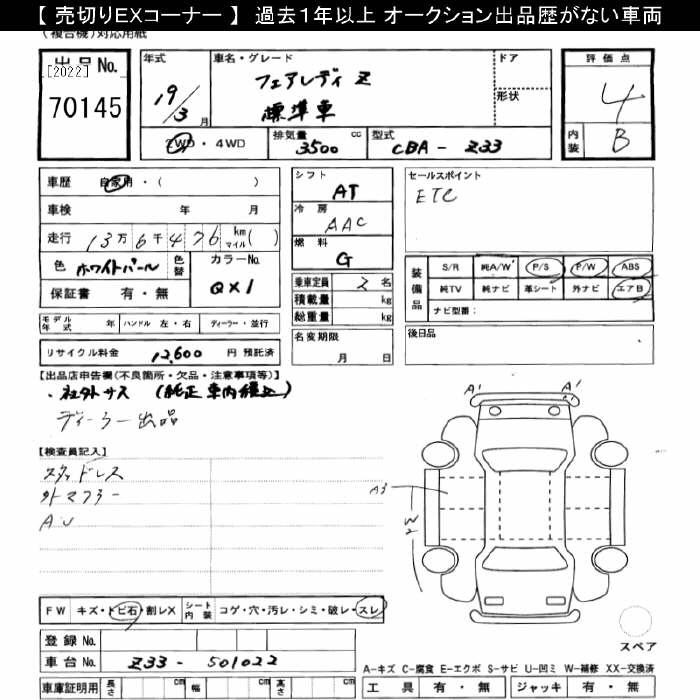 【 売切りEXコーナー 】 過去1年以上 オークション出品歴がない車両
(複合機)対応用紙
出品No.
[2022]
70145
年式
19/3月
車名・グレード
フェアレディ Z
標準車
ドア
形状
2WD・4WD
排気量 3500 cc
型式 CBA - Z33
評価点
4
内装 B
車歴 自家用・( )
車検 年 月
走行 13万6千476 km マイル( )
色 ホワイトパール 色替
カラーNo. QX1
保証書 有・無
シフト AT
冷房 AAC
燃料 G
乗車定員 2名
積載量 kg
総重量 kg
名変期限
月 日
セールスポイント
ETC
装備品
S/R 純A/W P/S P/W ABS
純TV 純ナビ 革シート 外ナビ エアB
ナビ型番:
後日品
モデル年式 年 ハンドル 左・右 ディーラー・並行
リサイクル料金 12,600 円 預託済
【出品店申告欄(不良箇所・欠品・注意事項等)】
・社外サス (純正 車内積込)
ディーラー出品
【検査員記入】
スタッドレス
外マフラー
A'
A'
A'
A3
W2
FW キズ・トビ石・割レX
シート内装 コゲ・穴・汚レ・シミ・破レ・スレ
登録No.
車台No. Z33 - 501022
車庫証明用 長さ cm 幅 cm 高さ cm
スペア
A-キズ C-腐食 E-エクボ S-サビ U-凹ミ W-補修 XX-交換済
工具 有・無 ジャッキ 有・無